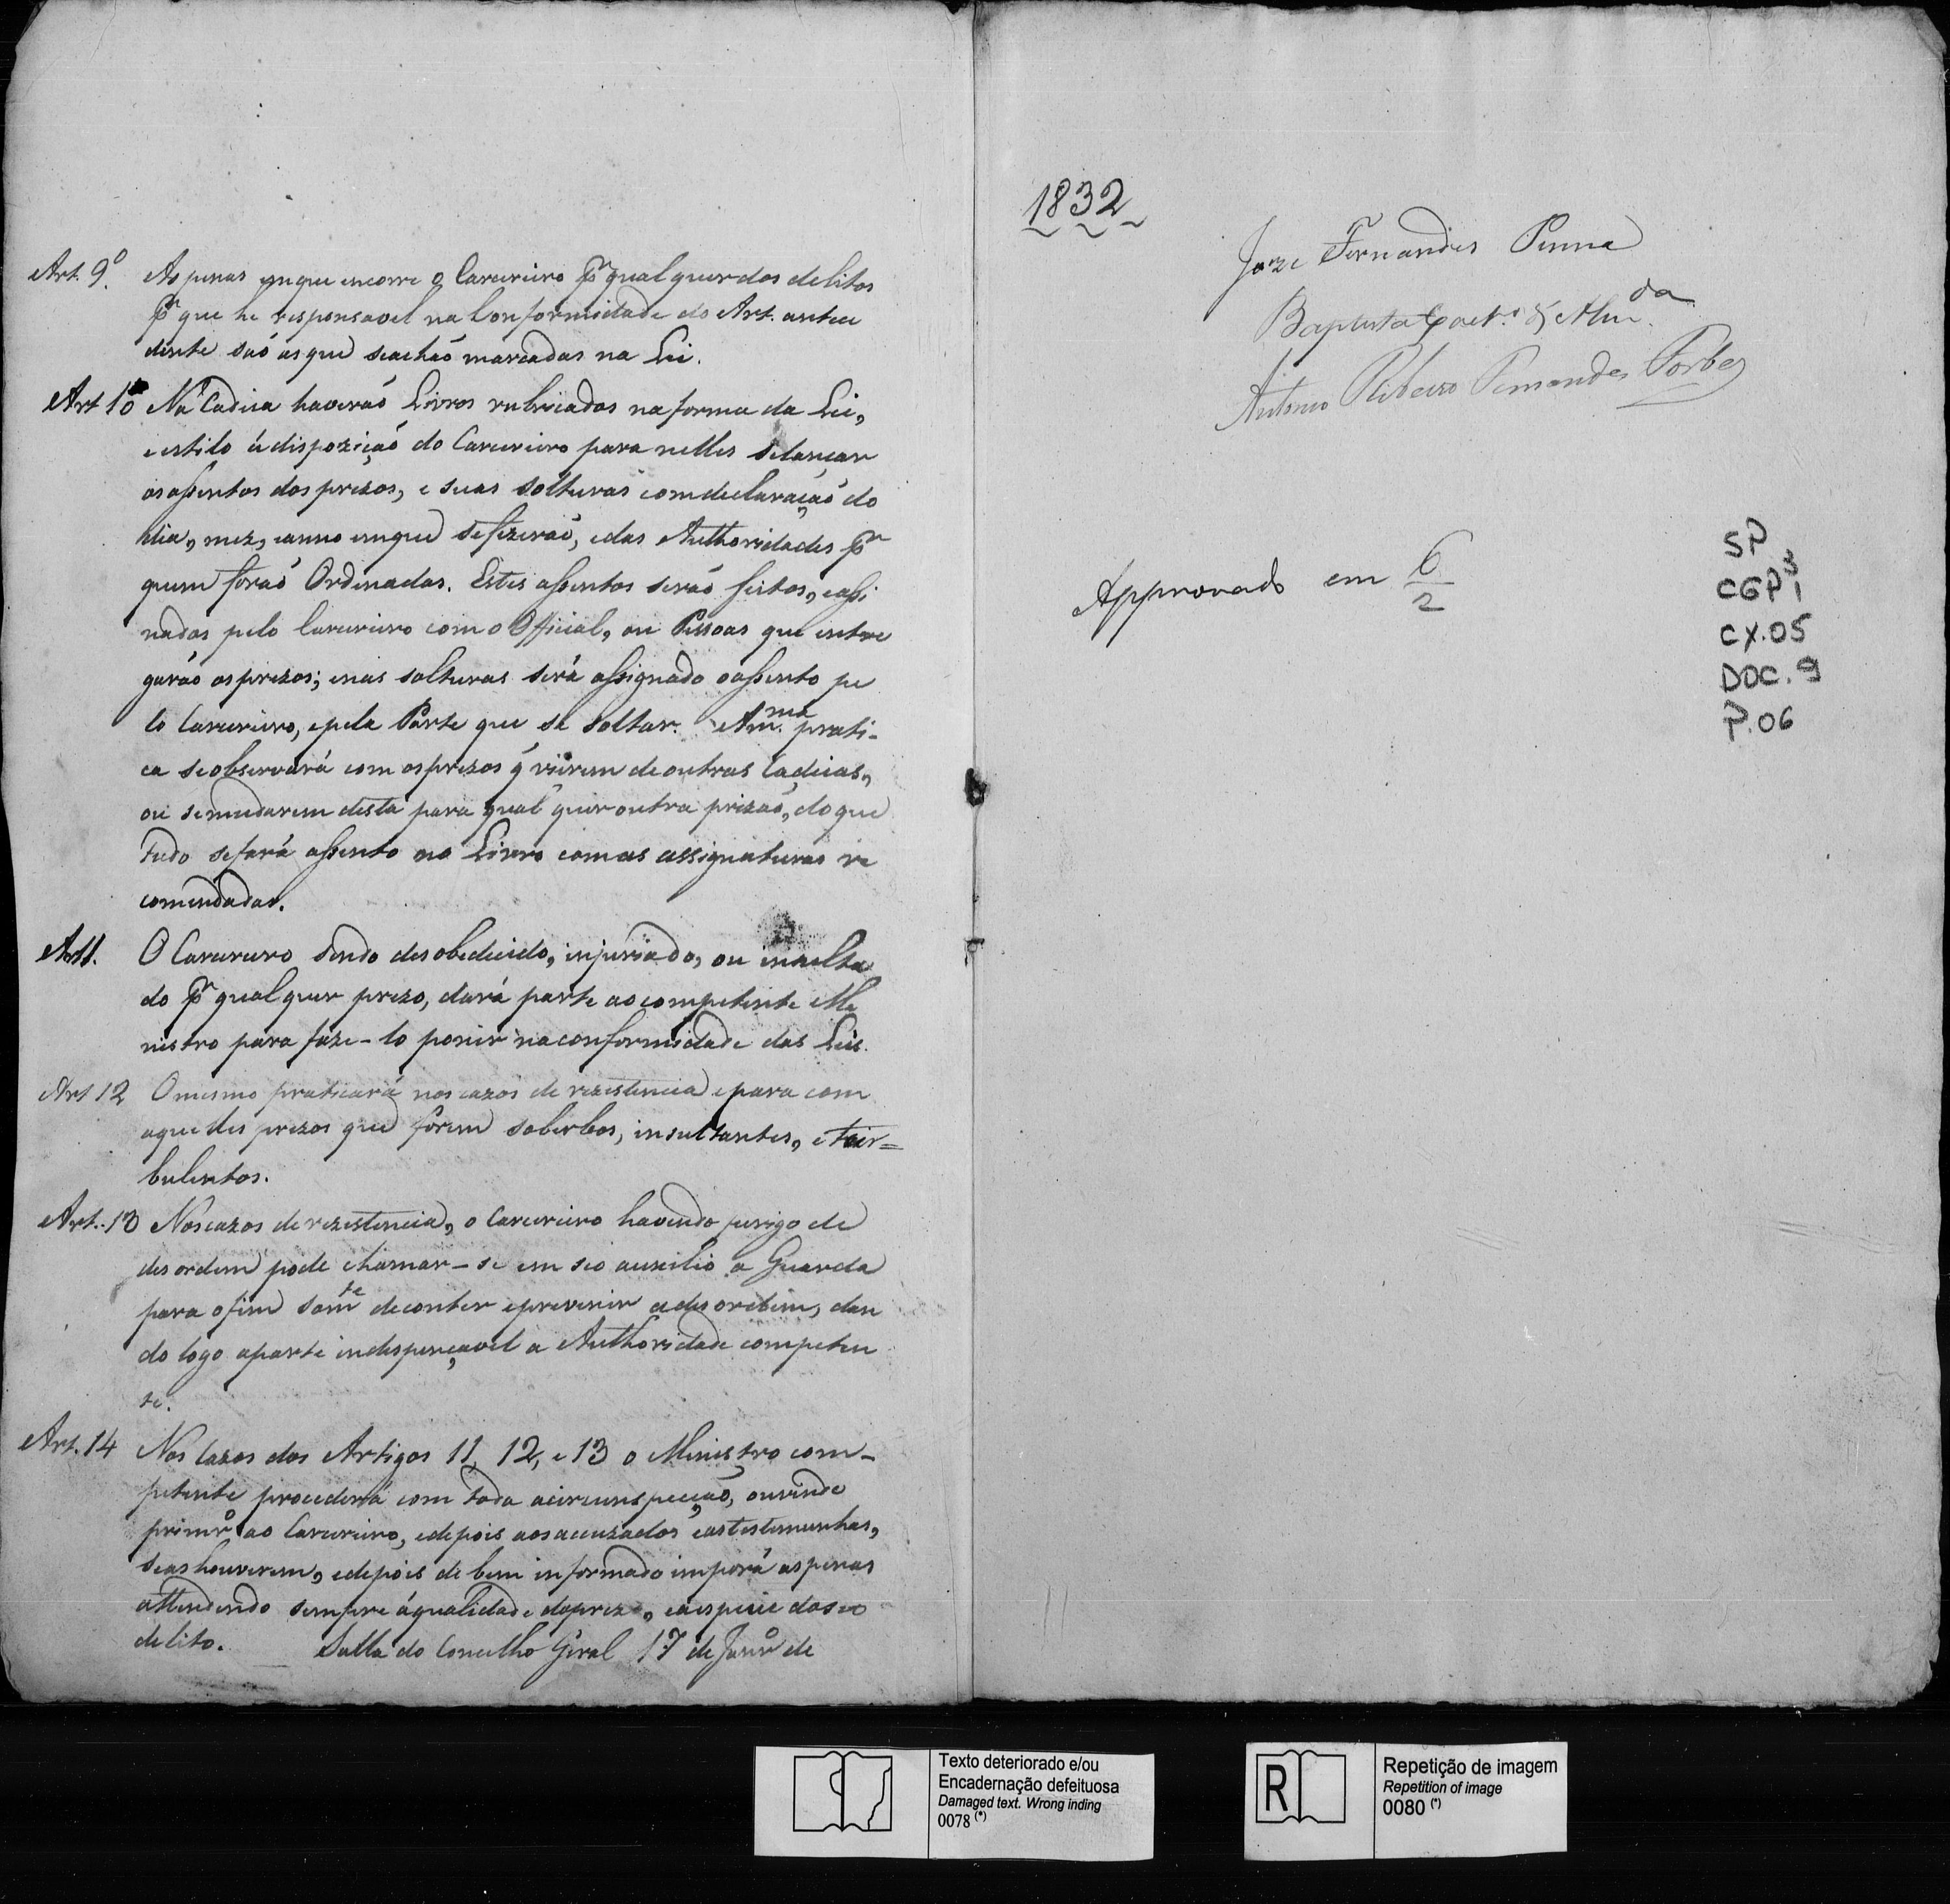 Art. 9º. As penas emque encorre o Carcereiro pʳ qualquer dos delitos
pʳ que he responsavel na Conformidade do Art. antece
dente saõ as que seachaõ marcadas na Lei.
Art 10 Na Cadeia haveraõ Livros rubricados na forma da Lei,
e estilo ádispoziçaõ do Carcereiro para nelles selançar
os assentos dos prezos, e suas solturas comdeclaraçaõ do
dia, mez, eanno emque sefizeraõ, edas Authoridades pʳ
quem foraõ Ordenadas. Estes assentos seraõ feitos, eassi
nados pelo Carcereiro com o Official, ou Pessoas que entre
garáo os prezos; enas solturas será assignado oassento pe
lo Carcereiro, epela Parte que se soltar. Am.ma prati-
ca seobservará com osprezos q̃ vierem deoutras Cadeias,
ou semudarem desta para qual quer outra prizaõ, do que
tudo sefará assento no Livro comas assignaturas re
comendadas.
Art 11. O Carcereiro sendo desobedecido, injuriado, ou insulta
do pʳ qualquer prezo, dará parte ao competente Me
nistro para faze-lo ponir naconformidade das Leis.
Art 12 Omesmo praticará nos cazos de rezestencia epara com
aquelles prezos que forem soberbos, insultantes, e tur=
bulentos.
Art. 13 Nos cazos de rezestencia, o Carcereiro havendo perigo de
desordem pode chamar-se em seo auxilio a Guarda
para ofim somte deconter eprevenir adesordem, dan
do logo aparte indespençavel a Authoridade competen
te.
Art. 14 Nos Cazos dos Artigos 11, 12, e 13 o Menistro com-
petente procederá com toda acircunspecçaõ, ouvindo
primrº ao Carcereiro, edepois aos acuzados eastestemunhas,
seas houverem, edepois de bem informado imporá aspenas
attendendo sempre áqualidade doprezo, eaespecie doseo
delito. Salla do Concelho Geral 17 de Janrº de
1832
Joze Fernandes Penna
Baptista Caet.º d'Alm.da
Antonio Ribeiro Fernandes Forbes
Approvado em 6/2
SP
CGP¹ 3
CX.05
DOC. 9
P.06
Texto deteriorado e/ou
Encadernação defeituosa
Damaged text. Wrong inding
0078 (*)
R
Repetição de imagem
Repetition of image
0080 (*)